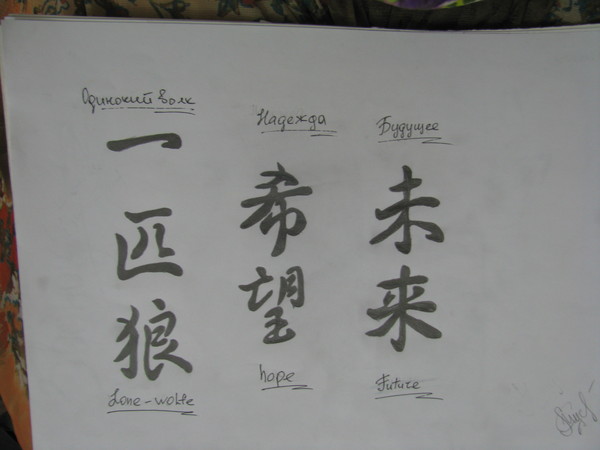 Одинокий волк
一
匹
狼
Lone-wolfe
Надежда
希
望
hope
Будущее
未
来
Future